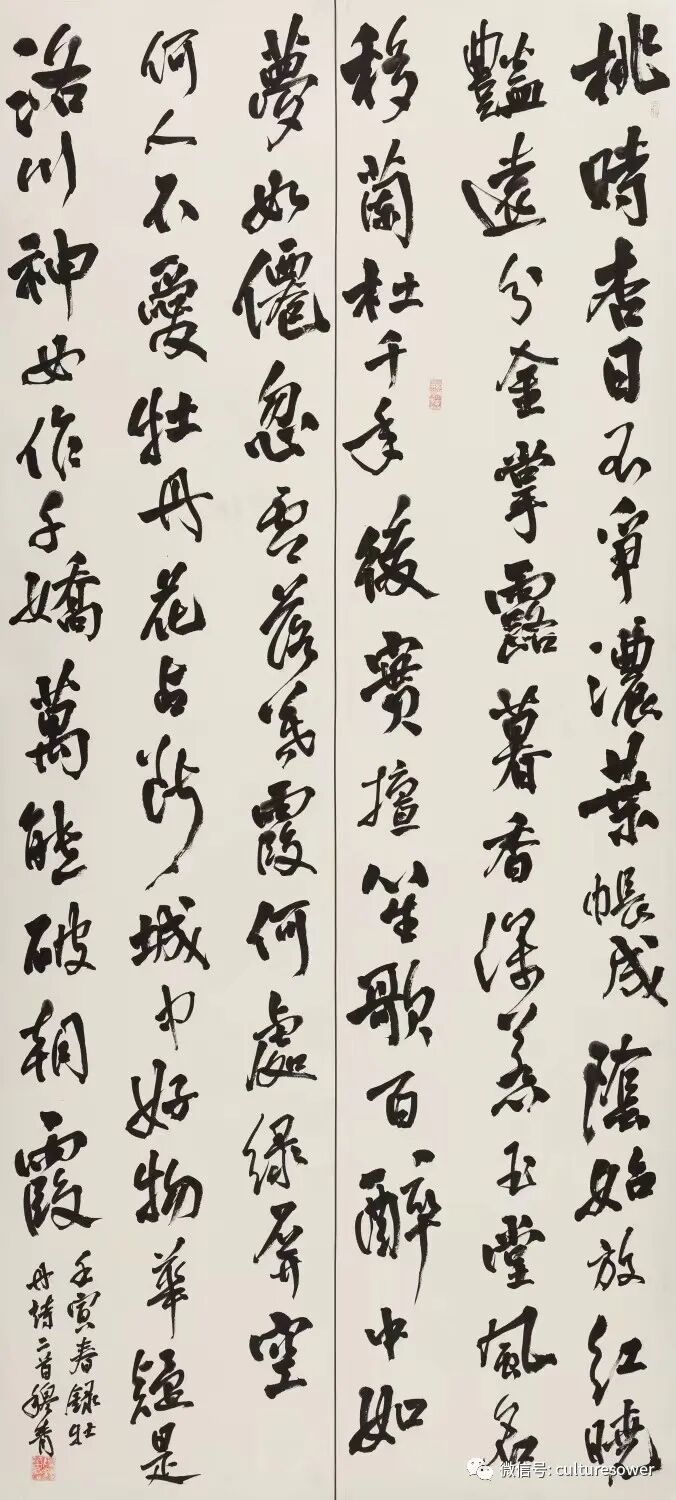 桃時杏日不爭濃葉帳成陰始放紅曉
豔遠分金掌露暮香深惹玉堂風名
移蘭杜千年後擅笙歌百醉中如
夢如僊忽零落暮霞何處綠屏空
何人不愛牡丹花占斷城中好物華疑是
洛川神女作千嬌萬態破朝霞
壬寅春錄牡
丹詩二首穆青
微信号: culturesower